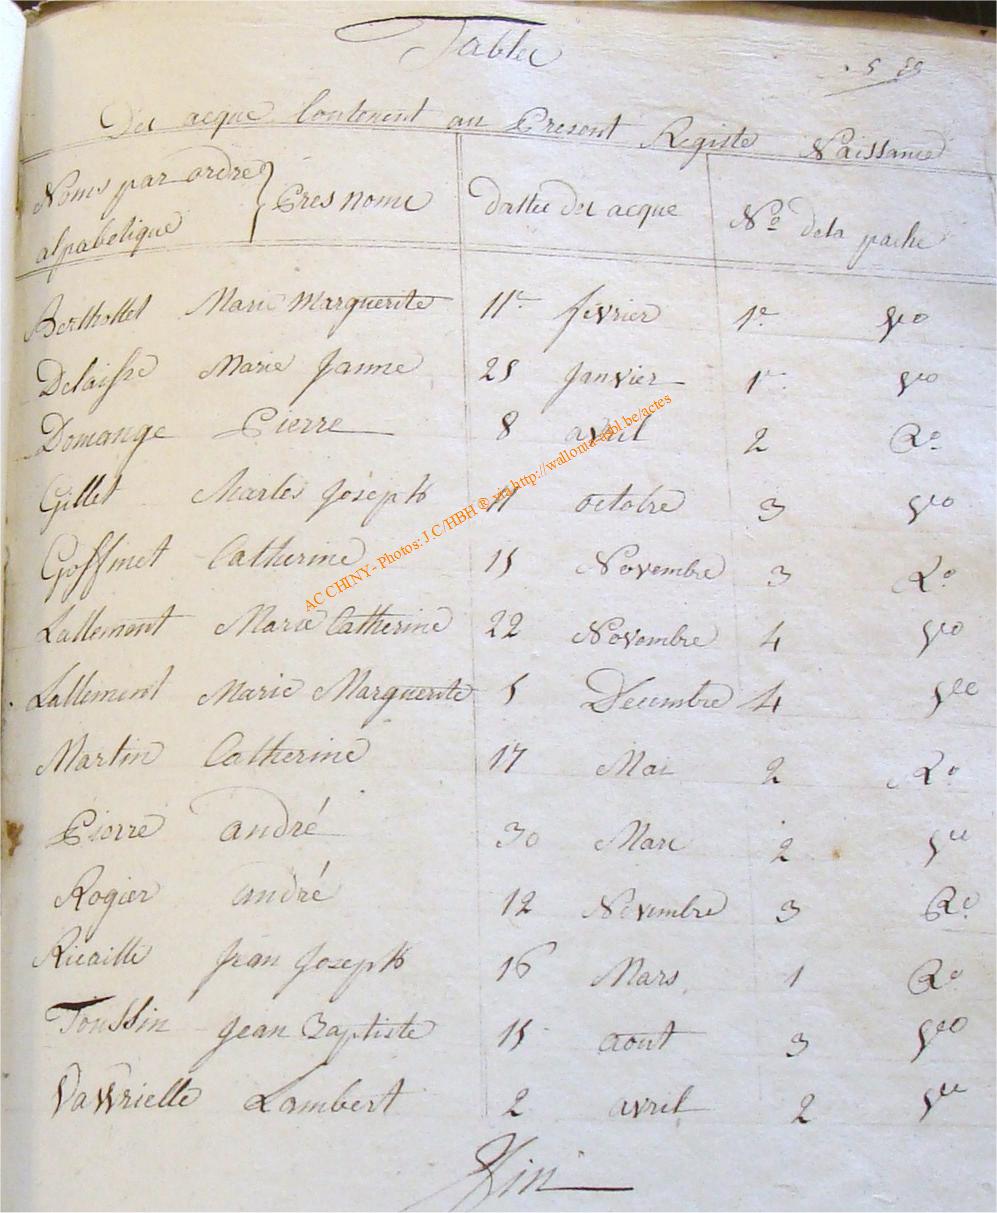 Table
Des acque Contenent au Present Registe Naissance
Noms par ordre alpabetique } Pres nome dattee des acque No dela pache
Berthollet Marie Marguerite 11e février 1e Vo
Delaisse Marie Janne 25 Janvier 1e Vo
Domange Pierre 8 avril 2 Ro
Gillet Charles Joseph 11 octobre 3 Vo
Goffinet Catherine 15 Novembre 3 Ro
Lallement Marie Catherine 22 Novembre 4 Vo
Lallement Marie Marguerite 5 Decembre 4
Martin Catherine 17 Mai 2 Ro
Pierre andré 30 Mars 2
Rogier andré 12 Novembre 3 Ro
Ricaille Jean Joseph 16 Mars 1 Ro
Toussin Jean Baptiste 15 aout 3 Vo
Vavvrielle Lambert 2 avril 2
Fin
AC CHINY - Photos: J.C/HBH ® via http://wallonia-asbl.be/actes